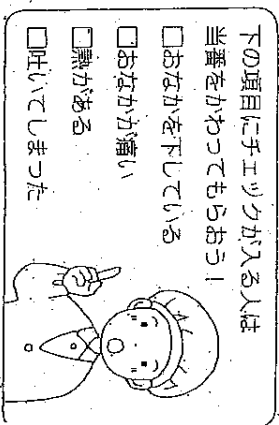 下の項目にチェックが入る人は
当番をかわってもらおう！
□おなかを下している
□おなかが痛い
□熱がある
□吐いてしまった